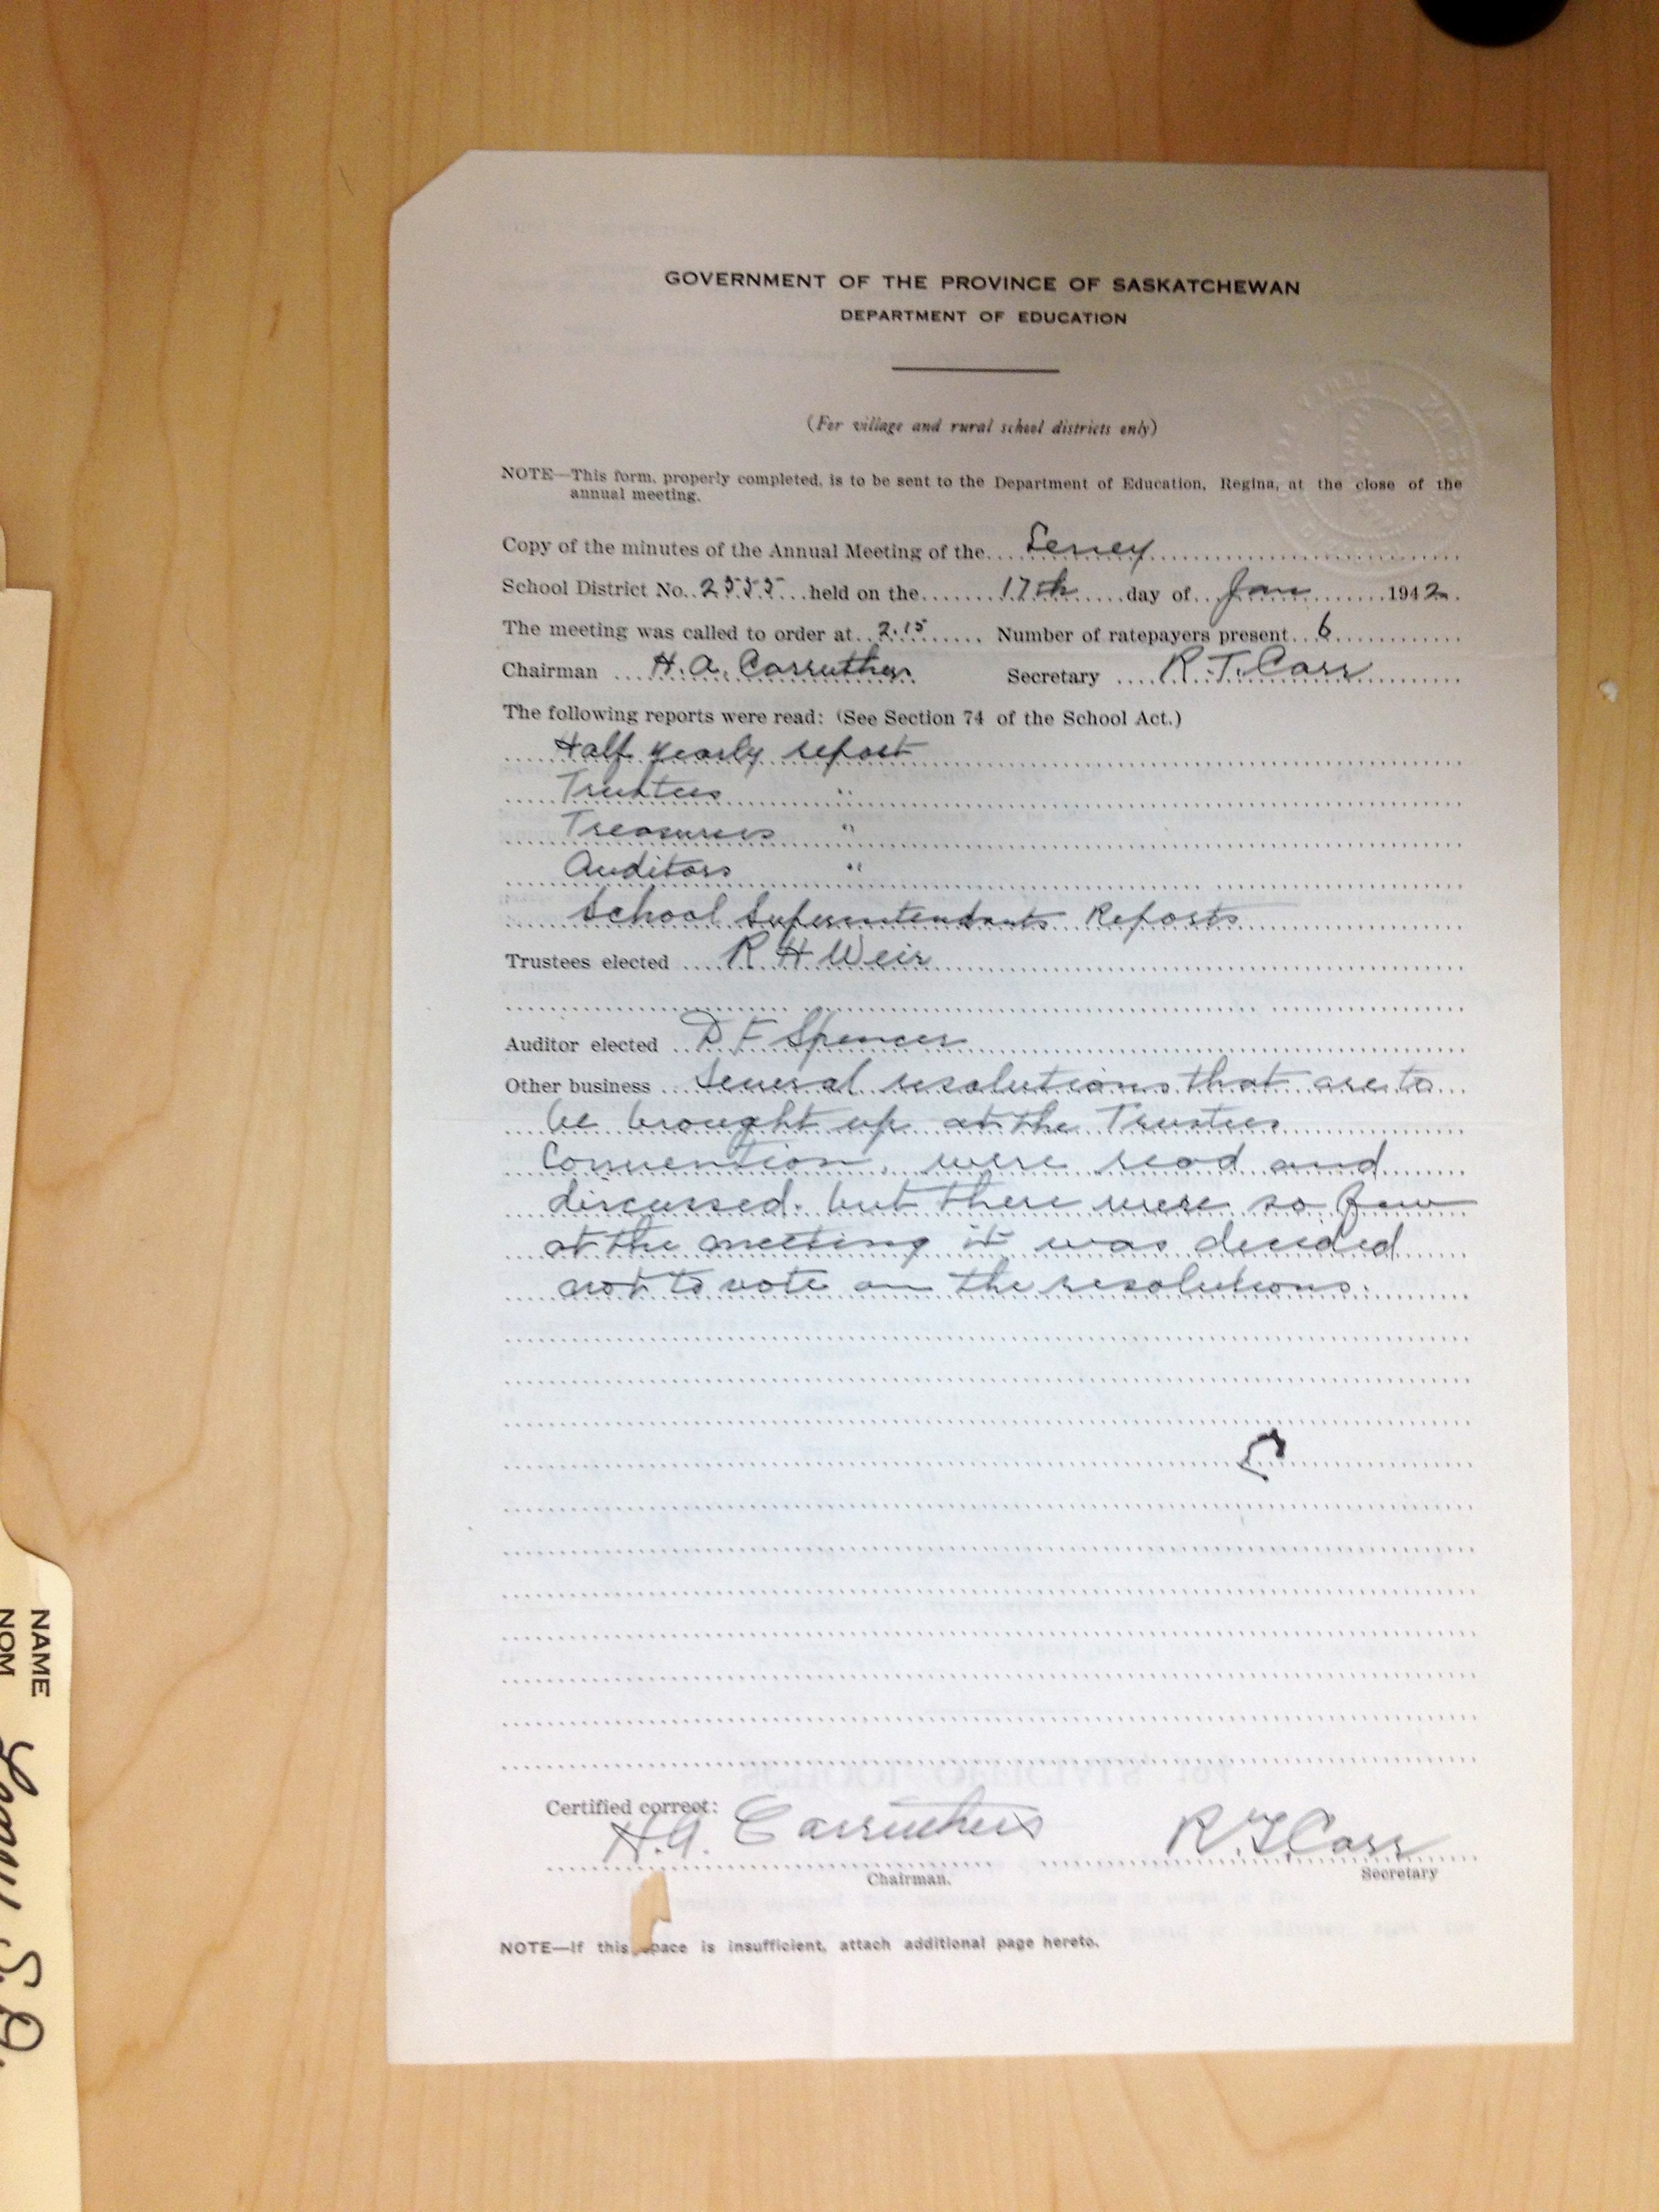 GOVERNMENT OF THE PROVINCE OF SASKATCHEWAN
DEPARTMENT OF EDUCATION
(For village and rural school districts only)
NOTE—This form, properly completed, is to be sent to the Department of Education, Regina, at the close of the
annual meeting.
Copy of the minutes of the Annual Meeting of the
School District No. 2555 held on the 17th day of Jan 1942.
The meeting was called to order at 2.15 Number of ratepayers present 6
Chairman H. A. Carruthers Secretary R. T. Carr
The following reports were read: (See Section 74 of the School Act.)
Half yearly report
Trustees "
Treasurers "
Auditors "
School Superintendants Reports
Trustees elected R H Weir
Auditor elected D F Spencer
Other business Several resolutions that are to
be brought up at the Trustees
Convention, were read and
discussed. but there were so few
at the meeting it was decided
not to vote on the resolutions.
Certified correct:
H. A. Carruthers R. T. Carr
Chairman. Secretary
NOTE—If this space is insufficient, attach additional page hereto.
NAME
NOM
S.D.